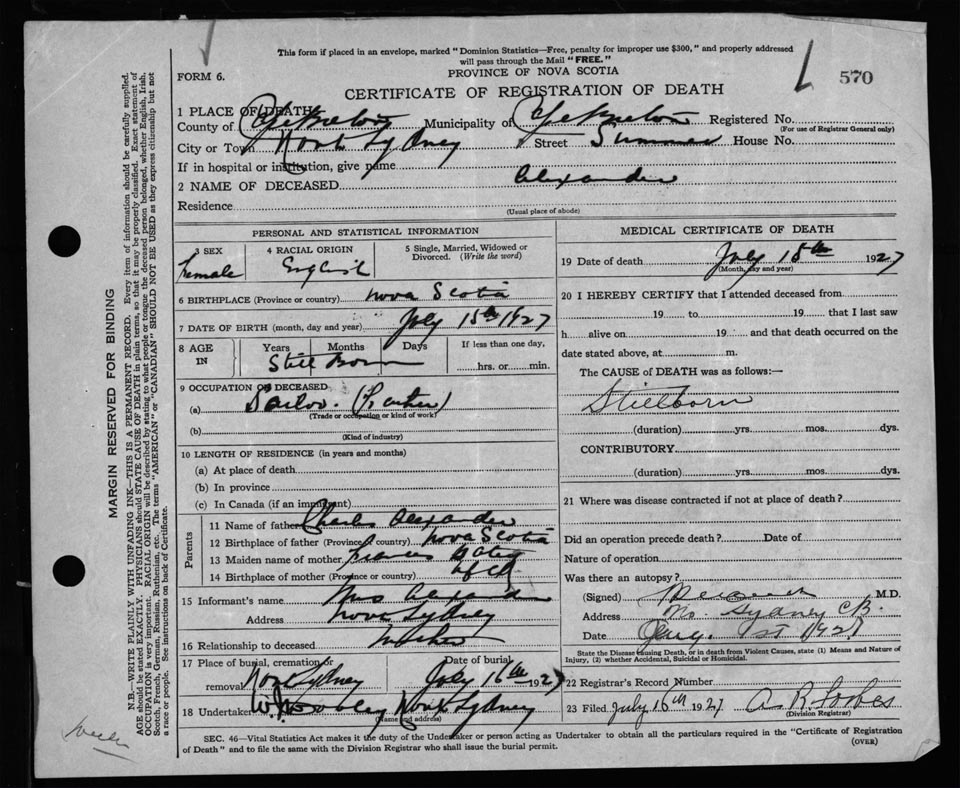 This form if placed in an envelope, marked "Dominion Statistics—Free, penalty for improper use $300," and properly addressed
will pass through the Mail "FREE."
FORM 6.
PROVINCE OF NOVA SCOTIA
570
CERTIFICATE OF REGISTRATION OF DEATH
1 PLACE OF DEATH
County of Cape Breton Municipality of Cape Breton Registered No.
(For use of Registrar General only)
City or Town North Sydney Street Summer House No.
If in hospital or institution, give name
2 NAME OF DECEASED Alexander
Residence
(Usual place of abode)
PERSONAL AND STATISTICAL INFORMATION
3 SEX 4 RACIAL ORIGIN 5 Single, Married, Widowed or Divorced. (Write the word)
Female English
6 BIRTHPLACE (Province or country) Nova Scotia
7 DATE OF BIRTH (month, day and year) July 15th 1927
8 AGE IN Years Months Days If less than one day,
Still Born hrs. or min.
9 OCCUPATION OF DECEASED
(a) Sailor (Father)
(Trade or occupation or kind of work)
(b)
(Kind of industry)
10 LENGTH OF RESIDENCE (in years and months)
(a) At place of death
(b) In province
(c) In Canada (if an immigrant)
Parents
11 Name of father Charles Alexander
12 Birthplace of father (Province or country) Nova Scotia
13 Maiden name of mother Frances
14 Birthplace of mother (Province or country) Nfld
15 Informant's name Mrs Alexander
Address North Sydney
16 Relationship to deceased Mother
17 Place of burial, cremation or removal North Sydney Date of burial July 16th 1927
18 Undertaker North Sydney
(Name and address)
MEDICAL CERTIFICATE OF DEATH
19 Date of death July 15th 1927
(Month, day and year)
20 I HEREBY CERTIFY that I attended deceased from
19 to 19 that I last saw
h alive on 19 and that death occurred on the
date stated above, at m.
The CAUSE of DEATH was as follows:—
Stillborn
(duration) yrs. mos. dys.
CONTRIBUTORY
(duration) yrs. mos. dys.
21 Where was disease contracted if not at place of death?
Did an operation precede death? Date of
Nature of operation
Was there an autopsy?
(Signed) M.D.
Address No. Sydney C.B.
Date Aug. 1st 1927
State the Disease Causing Death, or in death from Violent Causes, state (1) Means and Nature of
Injury, (2) whether Accidental, Suicidal or Homicidal.
22 Registrar's Record Number
23 Filed July 16th 1927 A. R. Forbes
(Division Registrar)
SEC. 46—Vital Statistics Act makes it the duty of the Undertaker or person acting as Undertaker to obtain all the particulars required in the "Certificate of Registration
of Death" and to file the same with the Division Registrar who shall issue the burial permit. (OVER)
MARGIN RESERVED FOR BINDING
N.B.—WRITE PLAINLY WITH UNFADING INK—THIS IS A PERMANENT RECORD. Every item of information should be carefully supplied.
AGE should be stated EXACTLY. PHYSICIANS should STATE CAUSE OF DEATH in plain terms, so that it may be properly classified. Exact statement of
OCCUPATION is very important. RACIAL ORIGIN will be described by stating to what people or tongue the deceased person belonged, whether English, Irish,
Scotch, French, German, Russian, Ruthenian, etc. The terms "AMERICAN" or "CANADIAN" SHOULD NOT BE USED as they express citizenship but not
a race or people. See instructions on back of Certificate.